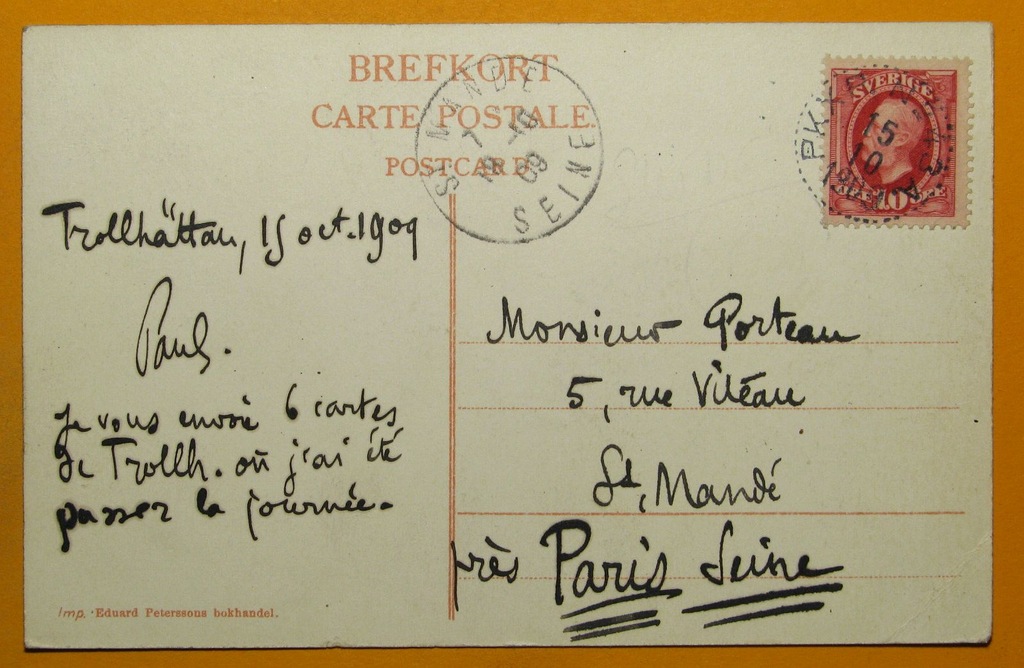 BREFKORT
CARTE POSTALE
POSTCARD
ST MANDÉ
7
18 -10
09
SEINE
SVERIGE
15
10
10
Trollhättan, 15 oct. 1909
Paul.
Je vous envoie 6 cartes
de Trollh. où j'ai été
passer la journée.
Monsieur Porteau
5, rue Viteau
St, Mandé
près Paris Seine
Imp. Eduard Peterssons bokhandel.